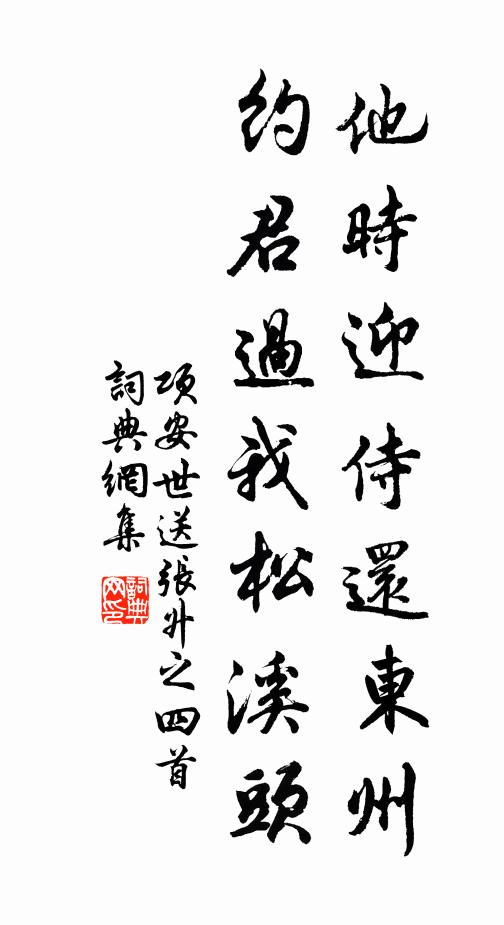 他時迎侍還東州
約君過我松溪頭
項安世送張升之四首
詞典網集
詞典網印